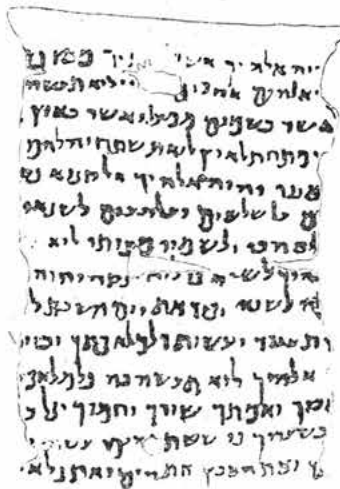 יהוה אלהיך אשר תיך מארץ
אלהים אחרים ני לוא תעשה
אשר בשמים ממעל ואשר בארץ
מתחת לארץ לוא תשתחוה להם
יהוה אלהיך אל קנוא
על שלשים ועל רבעים לשנאי
ולשמרי מצותי לוא
להיך לשוא ינקה יהוה
לשוא זכור את יום השבת ל
ועשית כל מלאכתך וביום
אלהיך לוא תעשה בה כל מלאכה
ואמתך שורך וחמרך וכל ב
בשעריך כי ששת ימים עשה י
ואת הארץ את הים ואת כל א